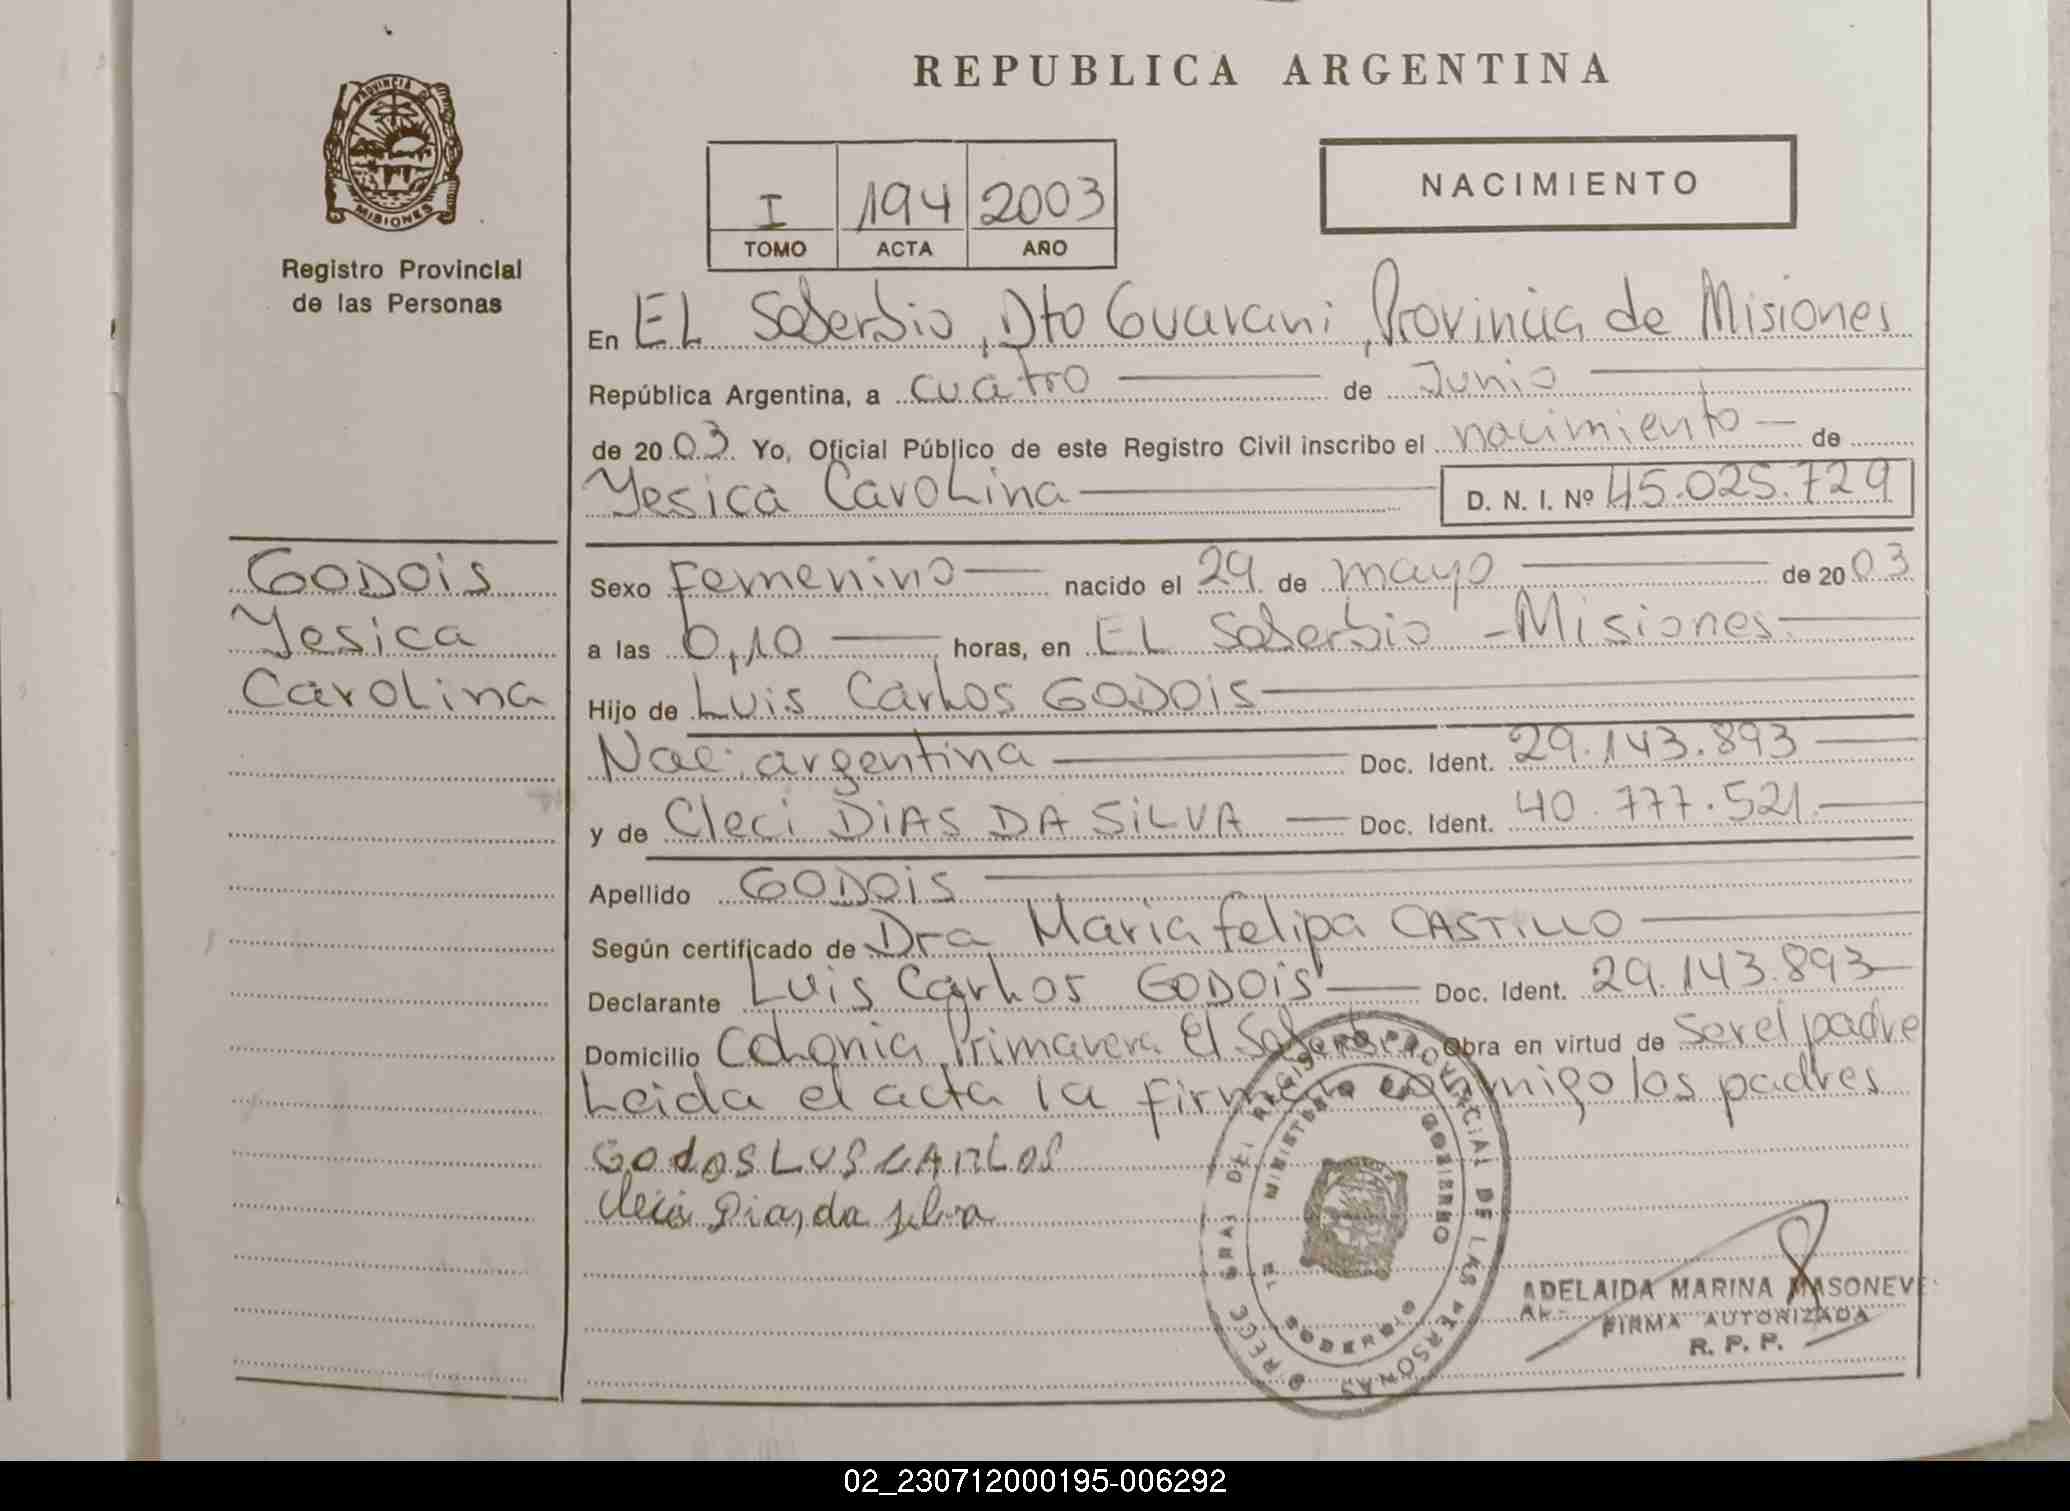 REPUBLICA ARGENTINA
PROVINCIA DE
MISIONES
Registro Provincial
de las Personas
I 194 2003
TOMO ACTA AÑO
NACIMIENTO
En EL Soberbio, Dto Guarani, Provincia de Misiones
República Argentina, a cuatro de Junio
de 2003. Yo, Oficial Público de este Registro Civil inscribo el nacimiento de
Yesica Carolina D. N. I. Nº 45.025.729
GODOiS
Yesica
Carolina
Sexo Femenino nacido el 29 de mayo de 2003
a las 0,10 horas, en EL Soberbio - Misiones
Hijo de Luis Carlos GODOiS
Nac. argentina Doc. Ident. 29.143.893
y de Cleci DiAS DA SiLVA Doc. Ident. 40.777.521
Apellido GODOiS
Según certificado de Dra Maria Felipa CASTILLO
Declarante Luis Carlos GODOiS Doc. Ident. 29.143.893
Domicilio Colonia Primavera El Soberbio Obra en virtud de ser el padre
Leida el acta la firman conmigo los padres
GODOS LUS CARLOS
Cleci Dias da silva
REGISTRO PROVINCIAL DE LAS PERSONAS
MINISTERIO DE GOBIERNO
EL SOBERBIO
ADELAIDA MARINA MASONEVE
FIRMA AUTORIZADA
R. P. P.
02_230712000195-006292